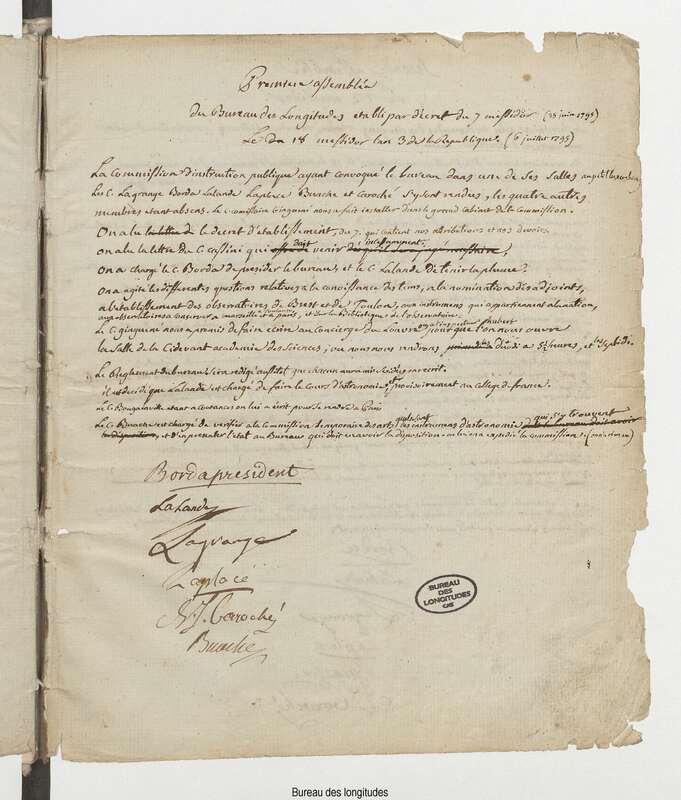 Premiere assemblée
du Bureau des Longitudes etabli par decret du 7 messidor (25 juin 1795)
Le 18 messidor lan 3 de la Republique. (6 juillet 1795)
La Commission d'instruction publique ayant convoqué le bureau dans une de ses salles
Les C. Lagrange Borda Lalande Laplace Buache et Caroché s'y sont rendus, les quatre autres
membres etant absens. Le commissaire Ginguené nous a fait installer dans le grand cabinet de la Commission.
On a lu la lettre de le decret d'etablissement, du 7. qui contient nos attributions et nos devoirs
on a lu la lettre du C. cassini qui doit venir incessamment
On a chargé le C. Borda de presider le bureau, et le C. Lalande de tenir la plume.
On a agité les differentes questions relatives a la conoissance des tems, a la nomination des adjoints,
a l'etablissement des observatoires de Brest et de Toulon, aux instrumens qui appartiennent a la nation,
a marseille a paris, et sur la Bibliotheque de l'observatoire.
Le C. ginguené nous a promis de faire ecrire au Concierge du Louvre pour que l'on nous ouvre
la Salle de la Cidevant academie des Sciences; ou nous nous rendrons decadi a 5½ heures, et
Le Reglement du bureau sera redigé aussitot que chacun aura mis ses idées par ecrit.
il est decidé que Lalande est chargé de faire le Cours d'astronomie provisoirement au college de france.
Le C. Bougainville etant a coutances on lui a ecrit pour se rendre a Paris
Le C. Buache est chargé de verifier a la Commission temporaire des arts quels sont les instrumens d'astronomie qui s'y trouvent
et d'en presenter l'etat au Bureau qui doit en avoir la disposition. on lui en a expedié la commission.
Borda president
Lalande
Lagrange
Laplace
N. J. Caroché
Buache
BUREAU
DES
LONGITUDES
Bureau des longitudes